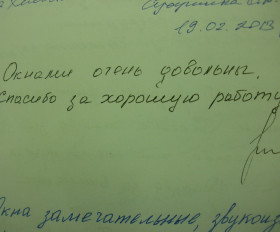 19.02.2013
Окнами очень довольны.
Спасибо за хорошую работу
Окна замечательные, звукоиз